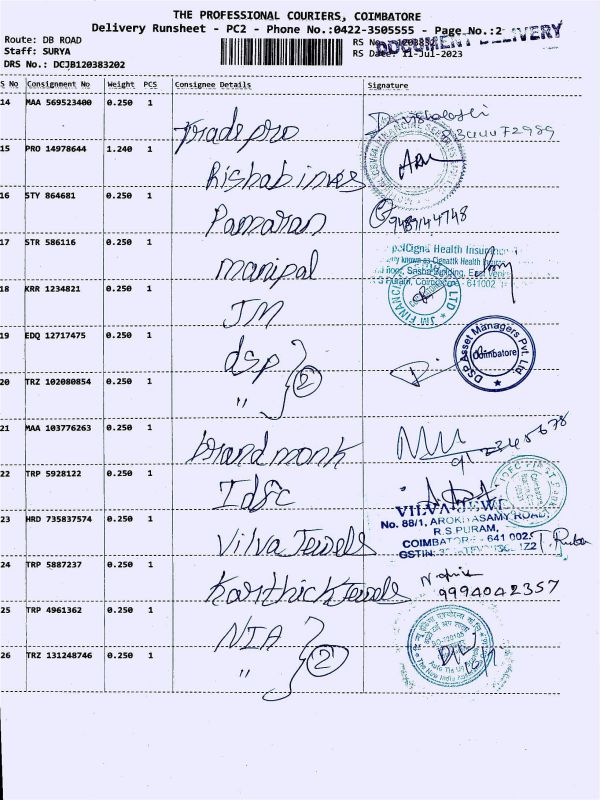 THE PROFESSIONAL COURIERS, COIMBATORE
Delivery Runsheet - PC2 - Phone No.:0422-3505555 - Page No.:2
Route: DB ROAD
Staff: SURYA
DRS No.: DCJB120383202
DOCUMENT DELIVERY
RS Date: 11-Jul-2023
S No Consignment No Weight PCS Consignee Details Signature
14 MAA 569523400 0.250 1 Trade pro
15 PRO 14978644 1.240 1 Rishab inves
16 STY 864681 0.250 1 Pamaran 9489144748
17 STR 586116 0.250 1 manipal
Cigna Health Insurance
Coimbatore - 641002
18 KRR 1234821 0.250 1 JM
JM FINANCIAL LTD
19 EDQ 12717475 0.250 1 dsp
DSP Asset Managers Pvt. Ltd.
Coimbatore
20 TRZ 102080854 0.250 1 " 2
21 MAA 103776263 0.250 1 brand monk
22 TRP 5928122 0.250 1 Idfc
23 HRD 735837574 0.250 1 Vilva Jewels
VILVA JEWE
No. 88/1, AROKIASAMY ROAD,
R.S PURAM,
COIMBATORE - 641 002
24 TRP 5887237 0.250 1 Karthick Jewels 9994042357
25 TRP 4961362 0.250 1 NIA
26 TRZ 131248746 0.250 1 " 2